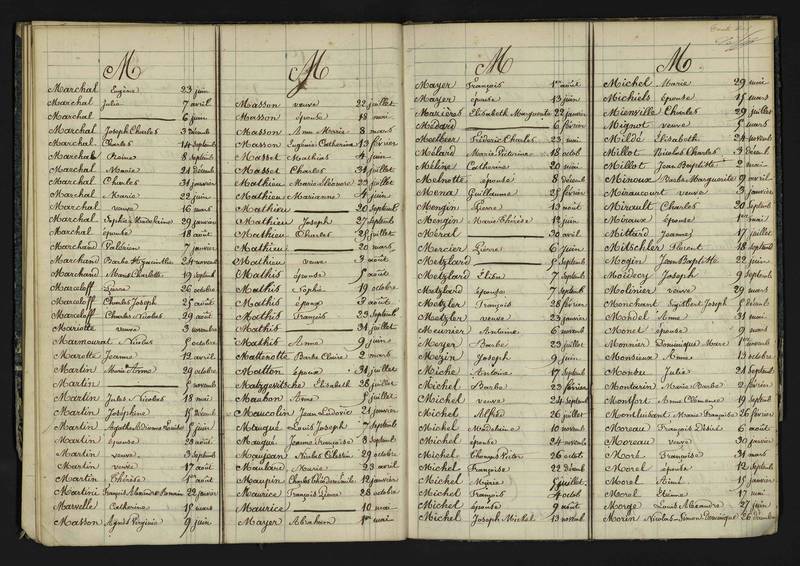 M
Marchal Eugène 23 juin
Marchal Julie 7 avril
Marchal 6 juin
Marchal Joseph Charles 3 Décemb
Marchal Charles 14 Septemb
Marchal Reine 8 Septemb
Marchal Marie 21 Décemb
Marchal Charles 31 janvier
Marchal Marie 22 juin
Marchal veuve 16 mars
Marchal Sophie Madeleine 29 janvier
Marchal épouse 18 août
Marchand Valérien 7 janvier
Marchand Barbe Hyacinthe 24 novemb
Marchand Charlotte 19 septemb
Marceloff Pierre 26 octobre
Marceloff Charles Joseph 25 août
Marceloff Charles Nicolas 29 août
Mariotte veuve 3 novembre
Nicolas 5 octobre
Marotte Jeanne 12 avril
Martin Marie Anne 29 octobre
Martin 5 novemb
Martin Jules Nicolas 18 mai
Martin Joséphine 15 Décemb
Martin 5 juin
Martin épouse 23 août
Martin veuve 3 Septemb
Martin veuve 17 août
Martin Thérèse 1er août
Martini François Alexandre 22 janvier
Marvelle Catherine 15 mars
Masson Agnès Virginie 9 juin
M
Masson veuve 22 juillet
Masson épouse 18 mai
Masson Anne Marie 8 mars
Masson Eugénie Catherine 13 février
Masset Mathias 4 juin
Masset Charles 31 juillet
Mathieu Marie Eléonore 23 juillet
Mathieu Marianne 4 juin
Mathieu 20 Septemb
Mathieu Joseph 27 Septemb
Mathieu Charles 25 juillet
Mathieu 20 mars
Mathieu veuve 3 août
Mathis épouse 5 août
Mathis Sophie 19 octobre
Mathis époux 3 août
Mathis François 23 Septemb
Mathis 31 juillet
Mathis Anne 9 juin
Mattenotte Barbe Claire 2 mars
Matton époux 31 juillet
Elisabeth 26 juillet
Maubon Anne 5 juillet
Maucolin Jean Ludovic 21 janvier
Mauqué Louis Joseph 7 Septemb
Mauqué Jeanne Françoise 8 Septemb
Maujean Nicolas Célestin 29 octobre
Maulard Marie 23 avril
Maupin Charles 12 janvier
Maurice François Pierre 28 octobre
Maurice 10 mai
Mayer Abraham 1er mai
M
Mayer François 1er août
Mayer épouse 13 juin
Mazières Elisabeth Marguerite 22 janvier
Médard 6 février
Meelbeer Frédéric Charles 23 mai
Mélard Marie Victorine 18 octob
Méline Catherine 20 mai
Melnotte épouse 8 Décemb
Mena Guillaume 25 février
Mengin Pierre 13 août
Mengin Marie Thérèse 12 juin
Meral 20 avril
Mercier Pierre 6 juin
Metzlard 5 Septemb
Metzlard Elisa 7 Septemb
Metzlard épouse 7 Septemb
Metzler François 28 février
Metzler veuve 23 janvier
Meunier Antoine 6 novemb
Meyer Barbe 23 juillet
Mezin Joseph 9 juin
Miche Antoine 17 Septemb
Michel Barbe 23 février
Michel veuve 24 Septemb
Michel Alfred 26 juillet
Michel Madeleine 10 novemb
Michel épouse 24 novemb
Michel 26 octob
Michel Françoise 22 Décemb
Michel Marie 5 juillet
Michel François 4 octob
Michel épouse 9 août
Michel Joseph Michel 13 novemb
M
Michel Marie 29 mai
Michiels épouse 15 mars
Mienville Charles 29 juillet
Mignot veuve 5 mars
Mildé Elisabeth 24 novemb
Millot Nicolas Charles 3 Décemb
Millot Jean Baptiste 2 mai
Minoux Marguerite 9 avril
Miraucourt veuve 3 janvier
Mirault Charles 20 Septemb
Miroux épouse 1er mai
Mittard Jeanne 17 juillet
Mitschler Florent 18 septemb
Mogin Jean Baptiste 22 juin
Joseph 9 septemb
Molinier veuve 29 mars
Monchant Joseph 5 Décemb
Mondel Anne 31 mai
Monet épouse 9 mars
Monnier Dominique Marc 1er novemb
Monsieux Anne 13 octobre
Julie 21 Septemb
Montarin Marie Barbe 2 février
Montfort Anne Clémence 19 Septemb
Montluisant Marie Françoise 26 février
Moreau François Désiré 6 août
Moreau veuve 30 janvier
Françoise 31 mars
Morel épouse 12 Septemb
Morel Aimé 15 janvier
Morel Etienne 17 mai
Morge Louis Alexandre 27 juin
Morin Nicolas Simon Dominique 26 décembre